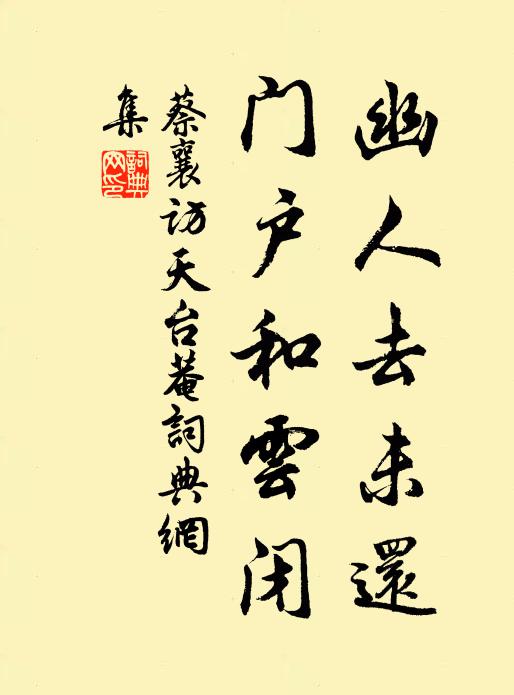 幽人去未還
门户和雲闭
蔡襄访天台菴詞典網
集
詞典网印